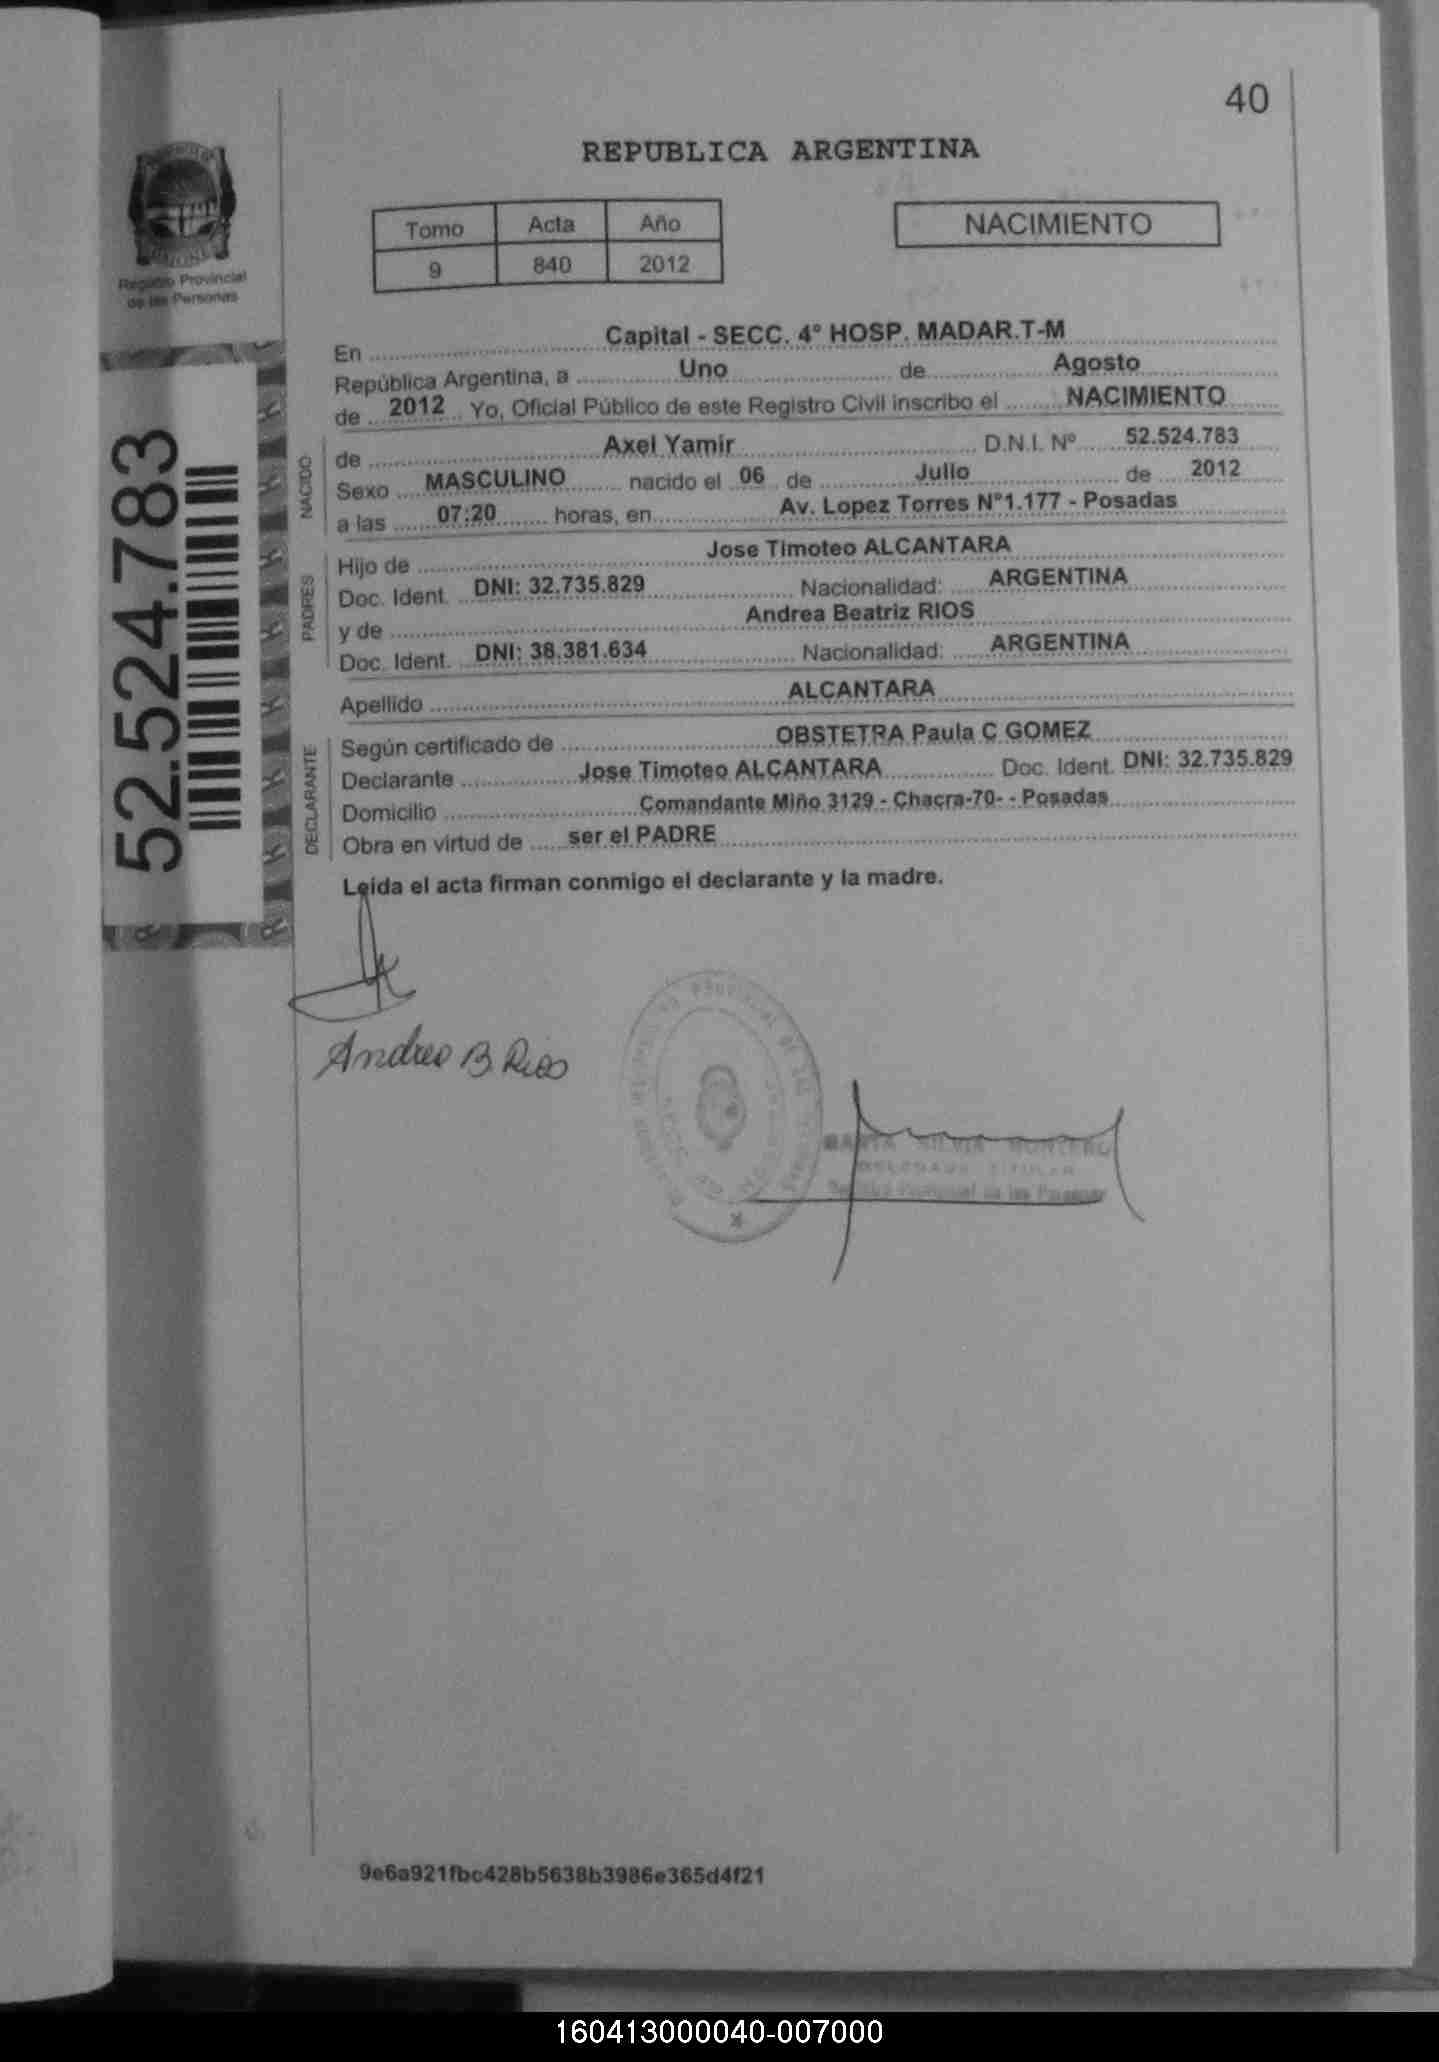 40
REPUBLICA ARGENTINA
Tomo Acta Año
9 840 2012
NACIMIENTO
Registro Provincial
de las Personas
52.524.783
En Capital - SECC. 4° HOSP. MADAR.T-M
República Argentina, a Uno de Agosto
de 2012 Yo, Oficial Público de este Registro Civil inscribo el NACIMIENTO
NACIDO
de Axel Yamir D.N.I. Nº 52.524.783
Sexo MASCULINO nacido el 06 de Julio de 2012
a las 07:20 horas, en Av. Lopez Torres N°1.177 - Posadas
PADRES
Hijo de Jose Timoteo ALCANTARA
Doc. Ident. DNI: 32.735.829 Nacionalidad: ARGENTINA
y de Andrea Beatriz RIOS
Doc. Ident. DNI: 38.381.634 Nacionalidad: ARGENTINA
Apellido ALCANTARA
DECLARANTE
Según certificado de OBSTETRA Paula C GOMEZ
Declarante Jose Timoteo ALCANTARA Doc. Ident. DNI: 32.735.829
Domicilio Comandante Miño 3129 - Chacra-70- - Posadas
Obra en virtud de ser el PADRE
Leida el acta firman conmigo el declarante y la madre.
Andrea B. Rios
SILVIA MONTERO
DELEGADA TITULAR
Registro Provincial de las Personas
9e6a921fbc428b5638b3986e365d4f21
160413000040-007000